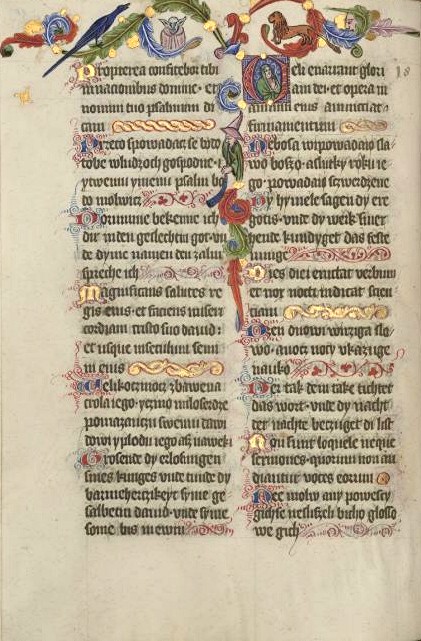 Propterea confitebor tibi
in nacionibus domine · et
nomini tuo psalmum di
cam
Przeto spowiadacz se bødø
tobe w ludzoch gospodne · y
ymenu twemu psalm bø
dø molwicz
Dorumme bekenne ich
dir in den geslechtin got · vn
de dyme namen den zalm
spreche ich
Magnificans salutes re
gis eius · et faciens miseri
cordiam cristo suo dauid :
et usque in seculum semi
ni eius
Welikczinocz zbawena
crola iego · y czinø miloserdze
pomazanczu swemu dawi
dowi y plodu iego asz naweki
Grosende dy erlosungen
sines kunges vnde tunde dy
barmeherczikeyt syme ge
salbetin dauid · vnde syme
some bis in ewen
Celi enarrant glori
18
am dei · et opera m
anuum eius annuncciat
firmamentum
Nebosa wipowadaiø sla
wø boszø · a skutky røku ie
go powiada stwerdzene
Dy hymele sagen dy ere
gotis · vnde dy werk siner
hende kundyget das feste
Dies diei eructat verbum
et nox nocti indicat scien
ciam
Dzen dnowi wirziga slo
wo · a nocz nocy vkazuge
naukø
Der tak dem take tichtet
das wort · vnde dy nacht
der nachte beczuget di list
Non sunt loquele neque
sermones · quorum non au
diantur voces eorum
Nee mowy any powescy
gichsze neslszeli bichø glosso
we gich